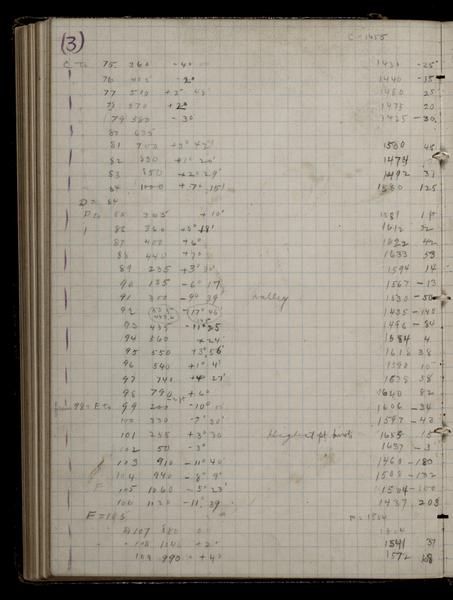 (3)
C = 1455
C to 75 260 -4° 1430 -25
76 405 -2° 1440 -35
77 510 +2° 1480 25
78 570 +2° 1475 20
79 580 -3° 1425 -30
80 635
81 700 +3° 42' 1500 45
82 830 +1° 20' 1474
83 850 +2° 29' 1492 37
84 1000 +7° 15' 1580 125
D = 84
D to 85 305 +10' 1581
86 360 +5° 18' 1612 32
87 400 +6° 1622 42
88 440 +7° 1633 53
89 235 +3° 1594 14
90 135 -6° 17' 1567 -13
91 310 -9° 39 valley 1530 -50
92 -17° 45' 1435 -145
93 435 -11° 25 1496 -84
94 560 +24' 1584 4
95 550 +3° 56' 1618 38
96 540 +1° 4' 1590 10
97 740 +4° 27' 1638 58
98 790 +6° 1640 82
98 = E to 99 200 -10° 1606 -34
100 330 -7° 30' 1597 -43
101 255 +3° 30 Highest pt 1655 15
102 50 -3° 1637 -3
103 910 -11° 40' 1460 -180
104 940 -8° 9' 1508 -132
105 1060 -5° 23' 1504 -100
106 1120 -11° 39 1437 203
F = 105 F = 1504
107 580
108 1040 +2° 1541 37
109 990 +4° 1572 68